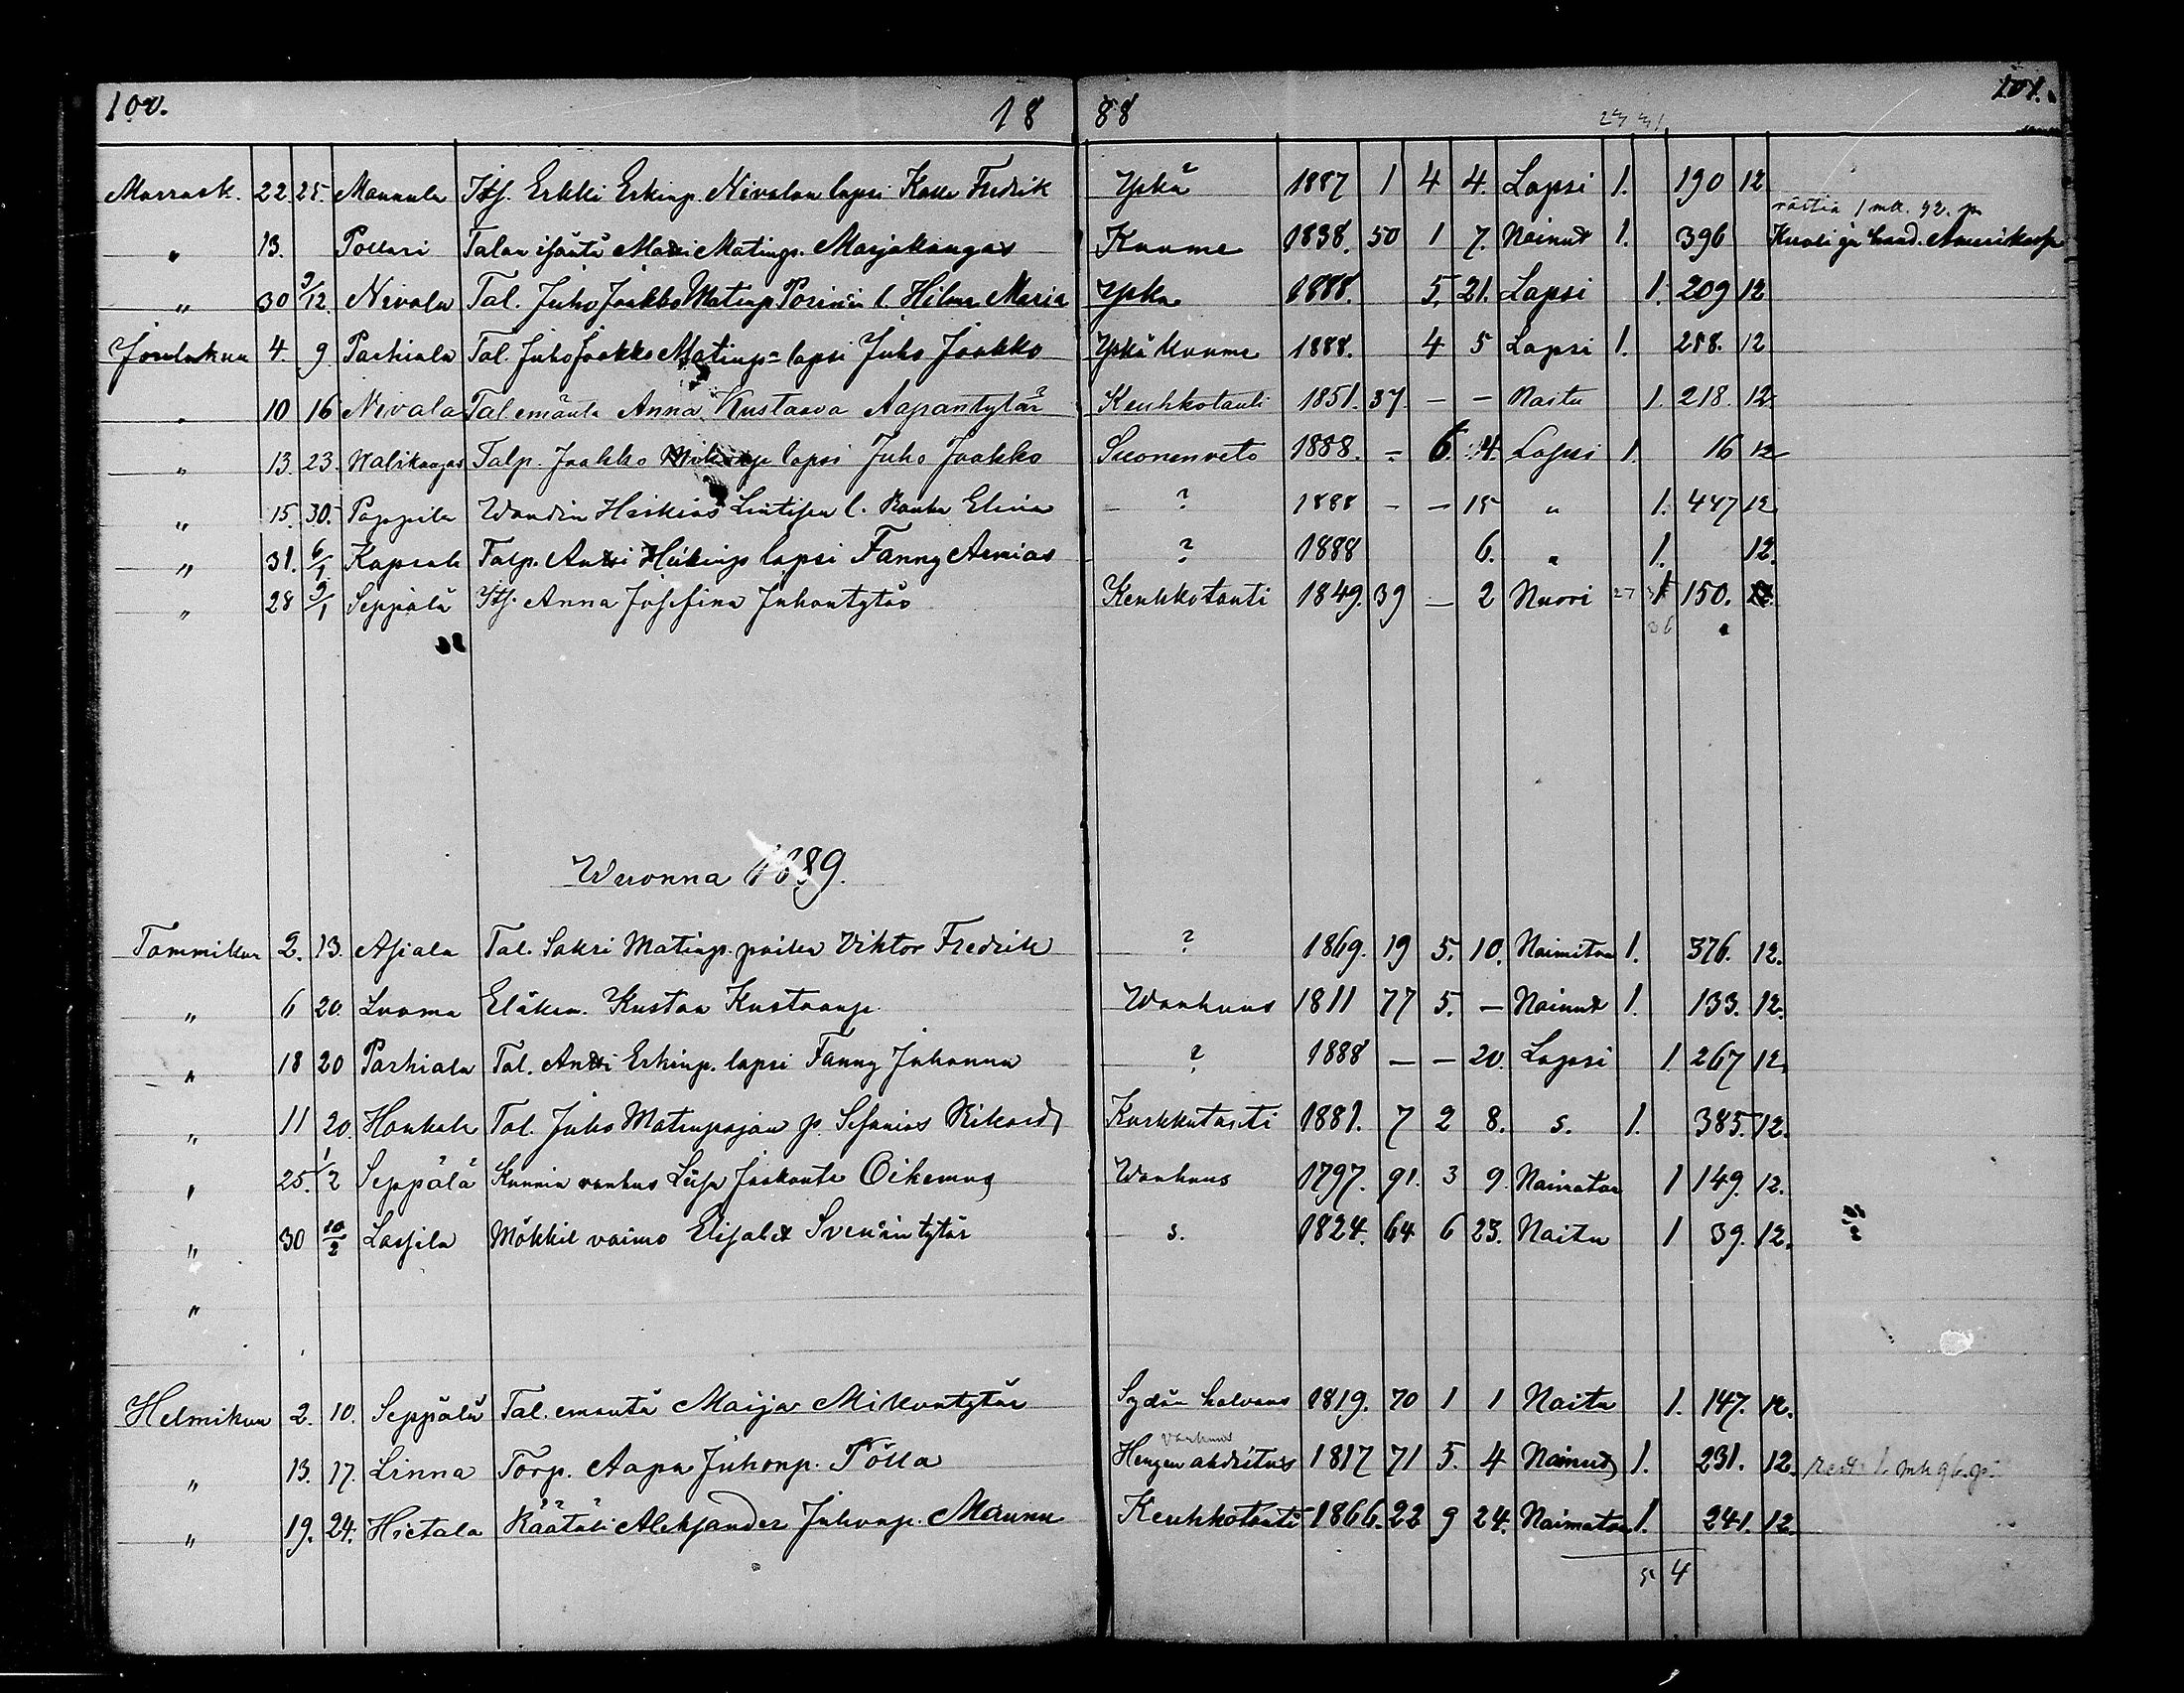 100. 18 88 101.
Marrask. 22. 25. Mannula Its. Erkki Erkinp. Nivalan lapsi Kalle Fredrik Yskä 1887 1 4 4. Lapsi 1. 190 12
rästiä 1 mk. 92. p
" 13. Pollari Talon isäntä Matti Matinp. Marjakangas Kuume 1838. 50 1 7. Nainut 1. 396 Kuoli ja haud. Amerikassa
" 30 9/12. Nivala Tal. Juho Jaakko Matinp Porinin l. Hilma Maria Yskä 1888. 5. 21. Lapsi 1. 209 12
Joulukuu 4. 9. Parhiala Tal. Juho Jaakko Matinp= lapsi Juho Jaakko Yskä kuume 1888. 4 5 Lapsi 1. 288. 12
" 10 16 Nivala Tal. emäntä Anna Kustaava Aapantytär Keuhkotauti 1851. 37. — — Naitu 1. 218. 12.
" 13. 23. Walikangas Talp. Jaakko lapsi Juho Jaakko Suonenveto 1888. – 6. 4. Lapsi 1. 16 12
" 15. 30. Pappila l. Elina – ? 1888 – – 15 " 1. 447 12
" 31. 6/1 Talp. Antti Heikinp lapsi Fanny ? 1888 6. " 1. 12.
" 28 9/1 Seppälä Its. Anna Josefina Juhontytär Keuhkotauti 1849. 39 — 2 Nuori 27 1 150. 12.
36
Wuonna 1889.
Tammikuu 2. 13. Asiala Tal. Sakri Matinp. poika Viktor Fredrik ? 1869. 19 5. 10. Naimaton 1. 376. 12.
" 6 20. Luoma Eläkem. Kustaa Kustaanp. Wanhuus 1811 77 5. — Nainut 1. 133. 12.
" 18 20 Parhiala Tal. Antti Erkinp. lapsi Fanny Johanna ? 1888 — — 20. Lapsi 1 267 12.
" 11 20. Honkala Tal. Juho Matinpojan p. Sefanias Rikard Kurkkutauti 1881. 7 2 8. s. 1. 385. 12.
" 25. 1/2 Seppälä Kunnin vanhus Liisa Jaakonte Oikemus Wanhuus 1797. 91. 3 9. Naimaton 1 149. 12.
" 30 10/2 Lassila Mökkil vaimo Elisabet Svenintytär s. 1824. 64 6 23. Naitu 1 39. 12.
"
Helmikuu 2. 10. Seppälä Tal. emäntä Maija Mikontytär Sydän halvaus 1819. 70 1 1 Naitu 1. 147. 12.
vanhuus
" 13. 17. Linna Torp. Aapa Juhonp. Pölla Hengen ahdistus 1817 71 5. 4 Nainut 1. 231. 12. rest 1. mk 96. p.
" 19. 24. Hietala Räätäli Aleksander Juhonp. Maunu Keuhkotauti 1866. 22 9 24. Naimaton 1. 241. 12.
5 4